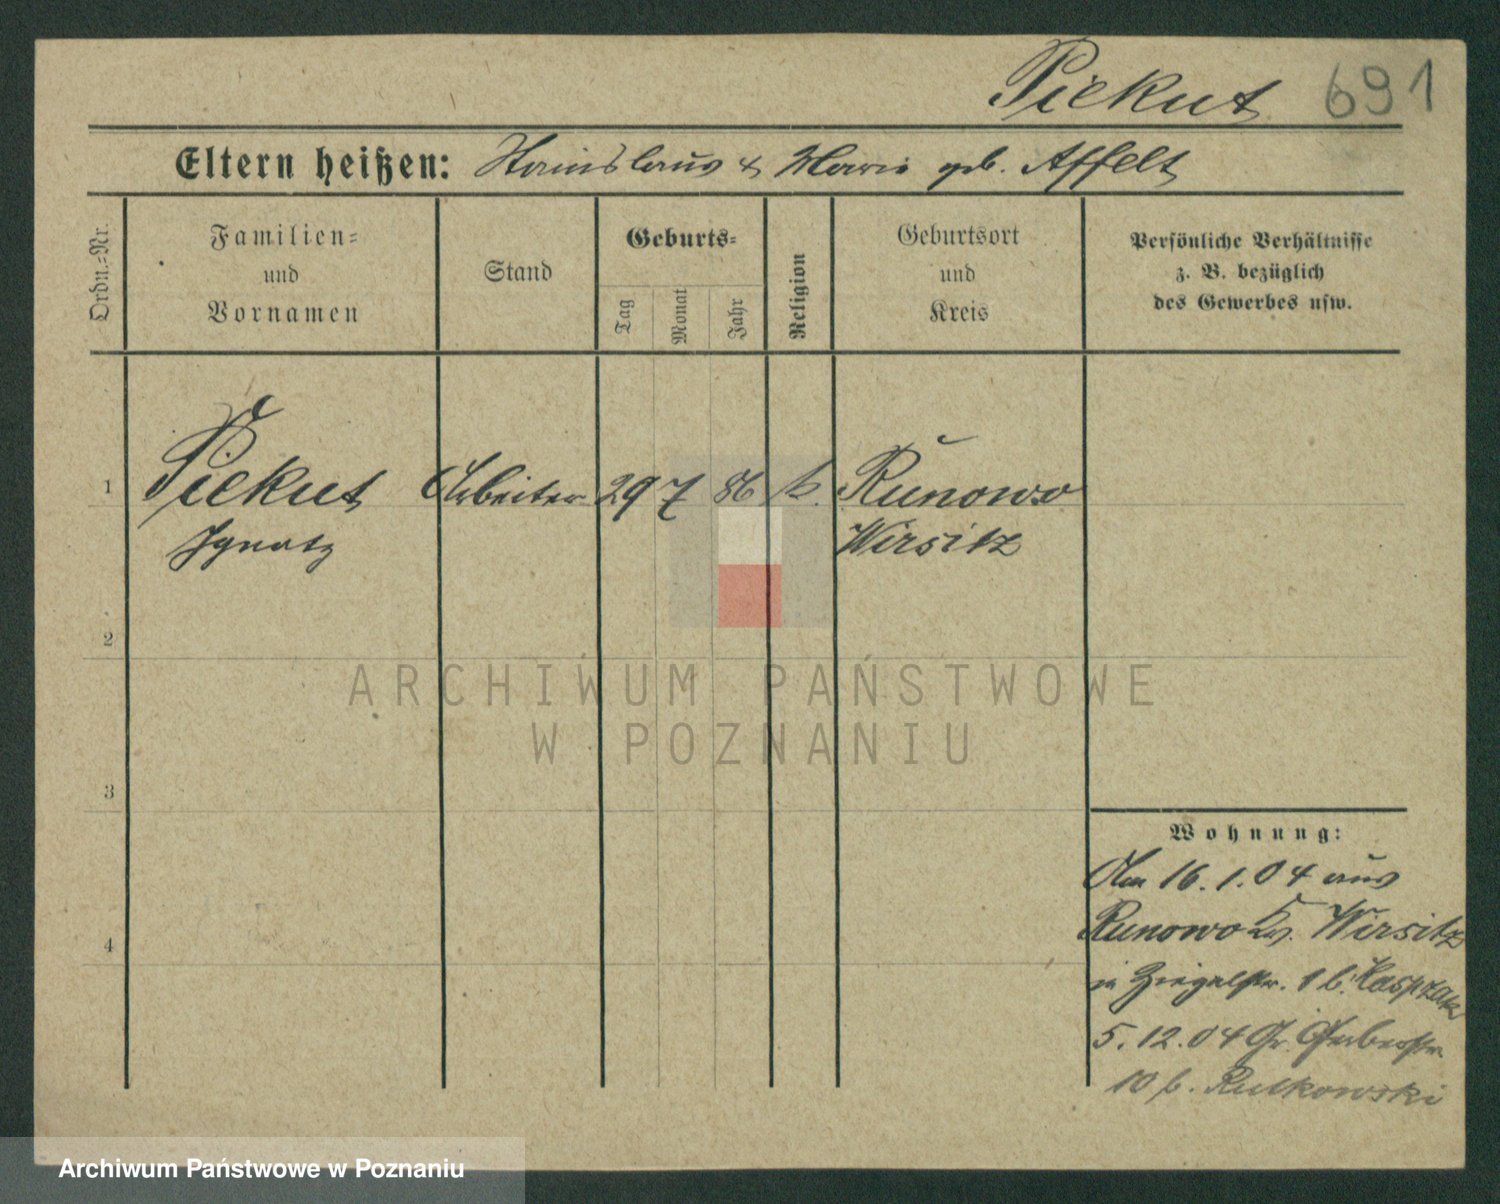 Piekut 691
Eltern heißen: Stanislaus & Marie geb. Affelt
Ordn.-Nr.
Familien-
und
Vornamen
Stand
Geburts-
Tag
Monat
Jahr
Religion
Geburtsort
und
Kreis
Persönliche Verhältnisse
z. B. bezüglich
des Gewerbes usw.
1 Piekut Arbeiter 29 7 86 k. Runowo
Ignatz Wirsitz
2
ARCHIWUM PAŃSTWOWE
W POZNANIU
3
Wohnung:
Am 16.1.04 aus
4 Runowo Kr. Wirsitz
in Ziegelstr. 1 b. Kasprzak
5.12.04 Gr. Gerberstr.
10 b. Rutkowski
Archiwum Państwowe w Poznaniu